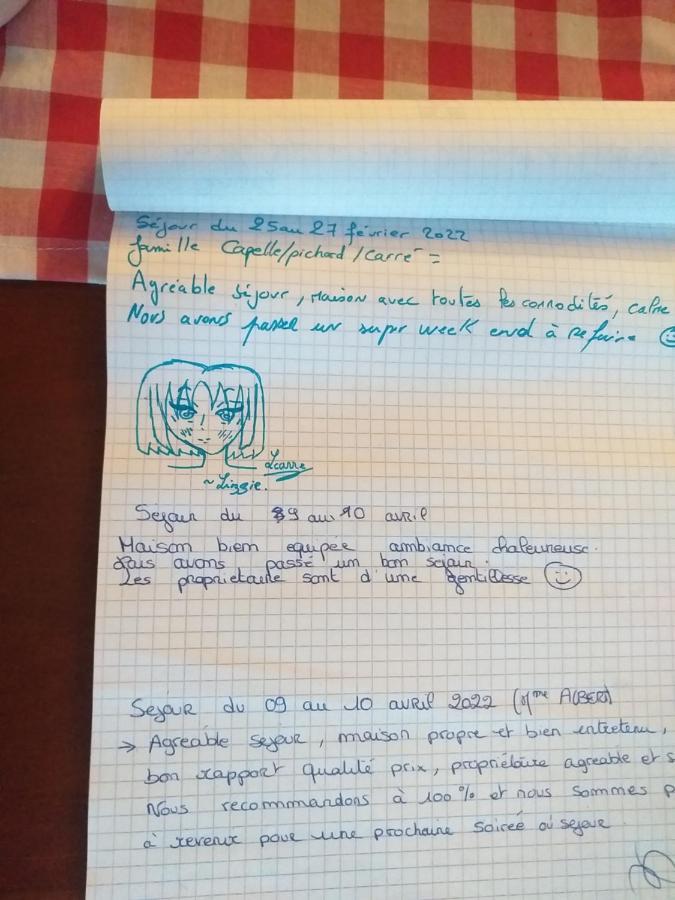 Séjour du 25 au 27 février 2022
famille Capelle/pichard/Carré =
Agréable séjour, Maison avec toutes les connodités, calme
Nous avons passé un supr week end à Refaire
Lcarre
~Lizzie.
Séjour du 9 au 10 avril
Maison biem equipee ambiance chaleureuse.
avons passé um bon sejour.
Les proprietaire sont d'ume gentillesse
Sejour du 09 au 10 avril 2022 (Mme ALBERT)
→ Agréable sejour, maison propre et bien entretenu,
bon rapport qualité prix, propriétaire agreable et s
Nous recommandons à 100% et nous sommes p
à revenir pour une prochaine soireé où sejour